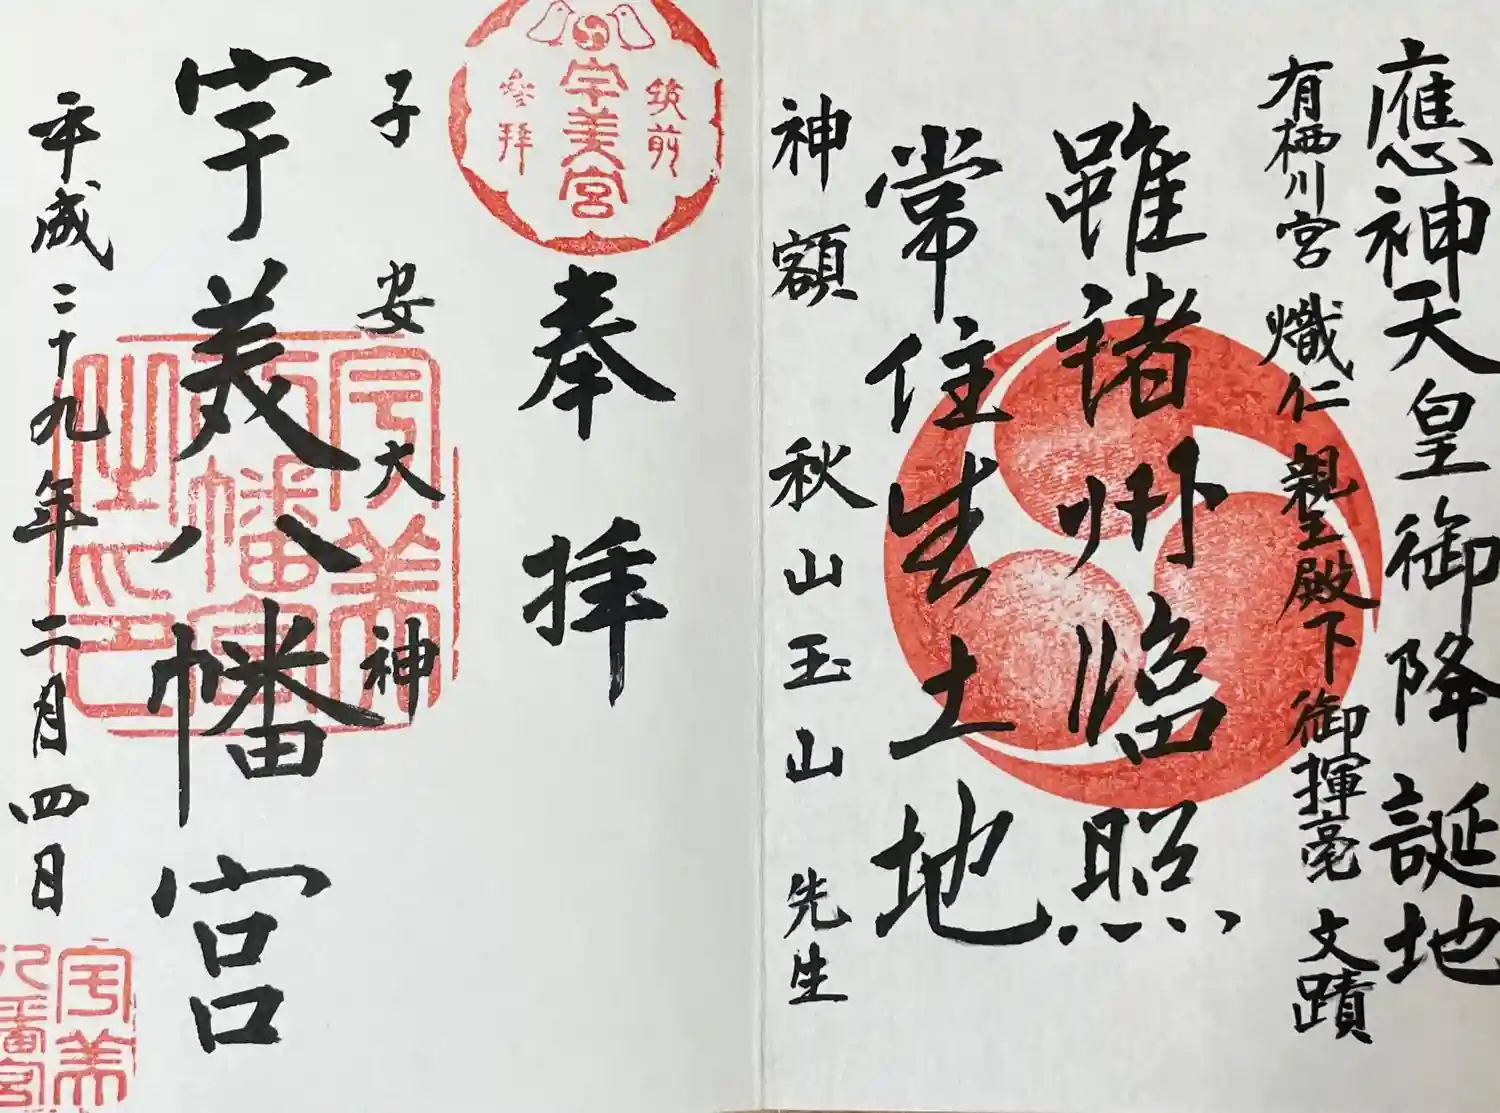 應神天皇御降誕地
有栖川宮熾仁親王殿下御揮毫文蹟
雖諸州臨照
常住生土地
神額 秋山玉山先生
筑前
宇美宮
參拝
奉拝
子安大神
宇美八幡宮
平成二十九年二月四日
宇美
八幡宮
之印
宇美
八幡宮